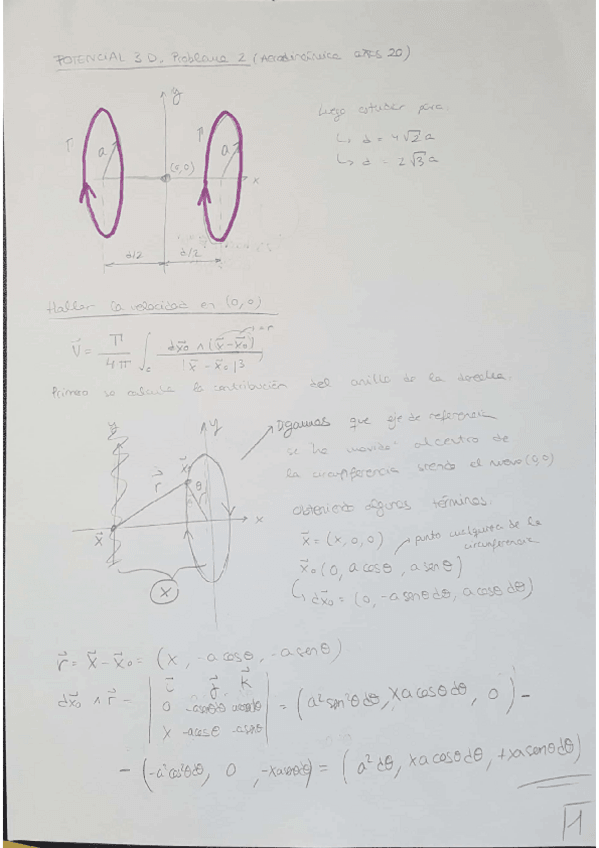 POTENCIAL 3D. Problema 2 (Aerodinámica 20)
y
Luego estudiar para:
↳ d = 4√2 a
↳ d = 2√3 a
Γ
a
(0,0)
Γ
a
x
d/2
d/2
Hallar la velocidad en (0,0)
V⃗ = Γ/4π ∫c dx⃗₀ ∧ (x⃗ - x⃗₀) / |x⃗ - x⃗₀|³
= r
Primero se calcula la contribución del anillo de la derecha.
y
y
Digamos que eje de referencia
se ha movido al centro de
la circunferencia siendo el nuevo (0,0)
obteniendo algunos términos.
r⃗
x⃗₀
θ
x
x⃗
x
x⃗ = (x, 0, 0)
punto cualquiera de la
circunferencia
x⃗₀ (0, a cosθ, a senθ)
↳ dx⃗₀ = (0, -a senθ dθ, a cosθ dθ)
r⃗ = x⃗ - x⃗₀ = (x, -a cosθ, -a senθ)
i⃗ j⃗ k⃗
dx⃗₀ ∧ r⃗ = | 0 -asenθdθ acosθdθ | = (a² sen²θ dθ, x a cosθ dθ, 0) -
x -acosθ -asenθ
- (-a²cos²θdθ, 0, -xasenθdθ) = (a² dθ, x a cosθ dθ, +x a senθ dθ)
1